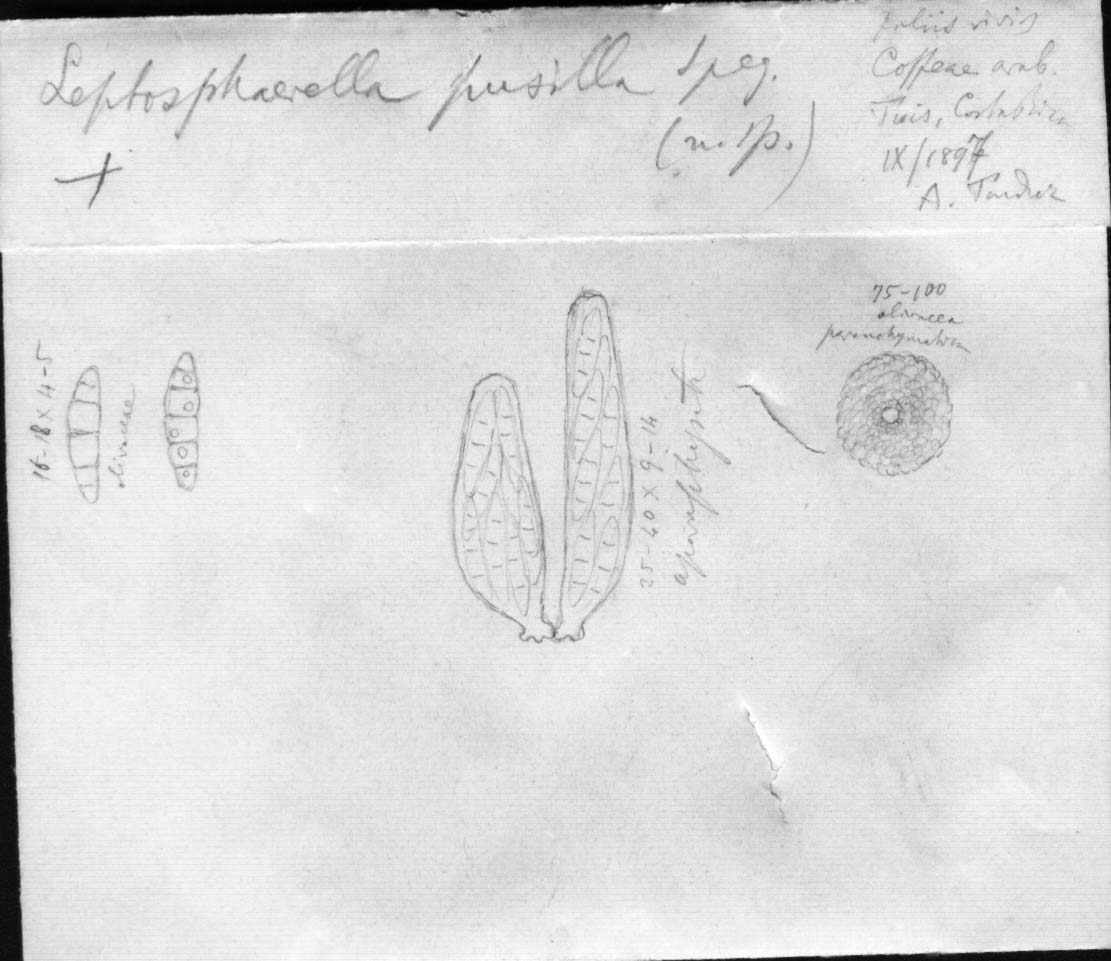 Leptosphaerella pusilla Speg.
(n. sp.)
+
foliis vivis
Coffeae arab.
Tuis, Costa Rica
IX/1897
A.
16-18 X 4-5
olivaceae
25-40 X 9-14
aparaphysati
75-100
olivacea
parenchymatica